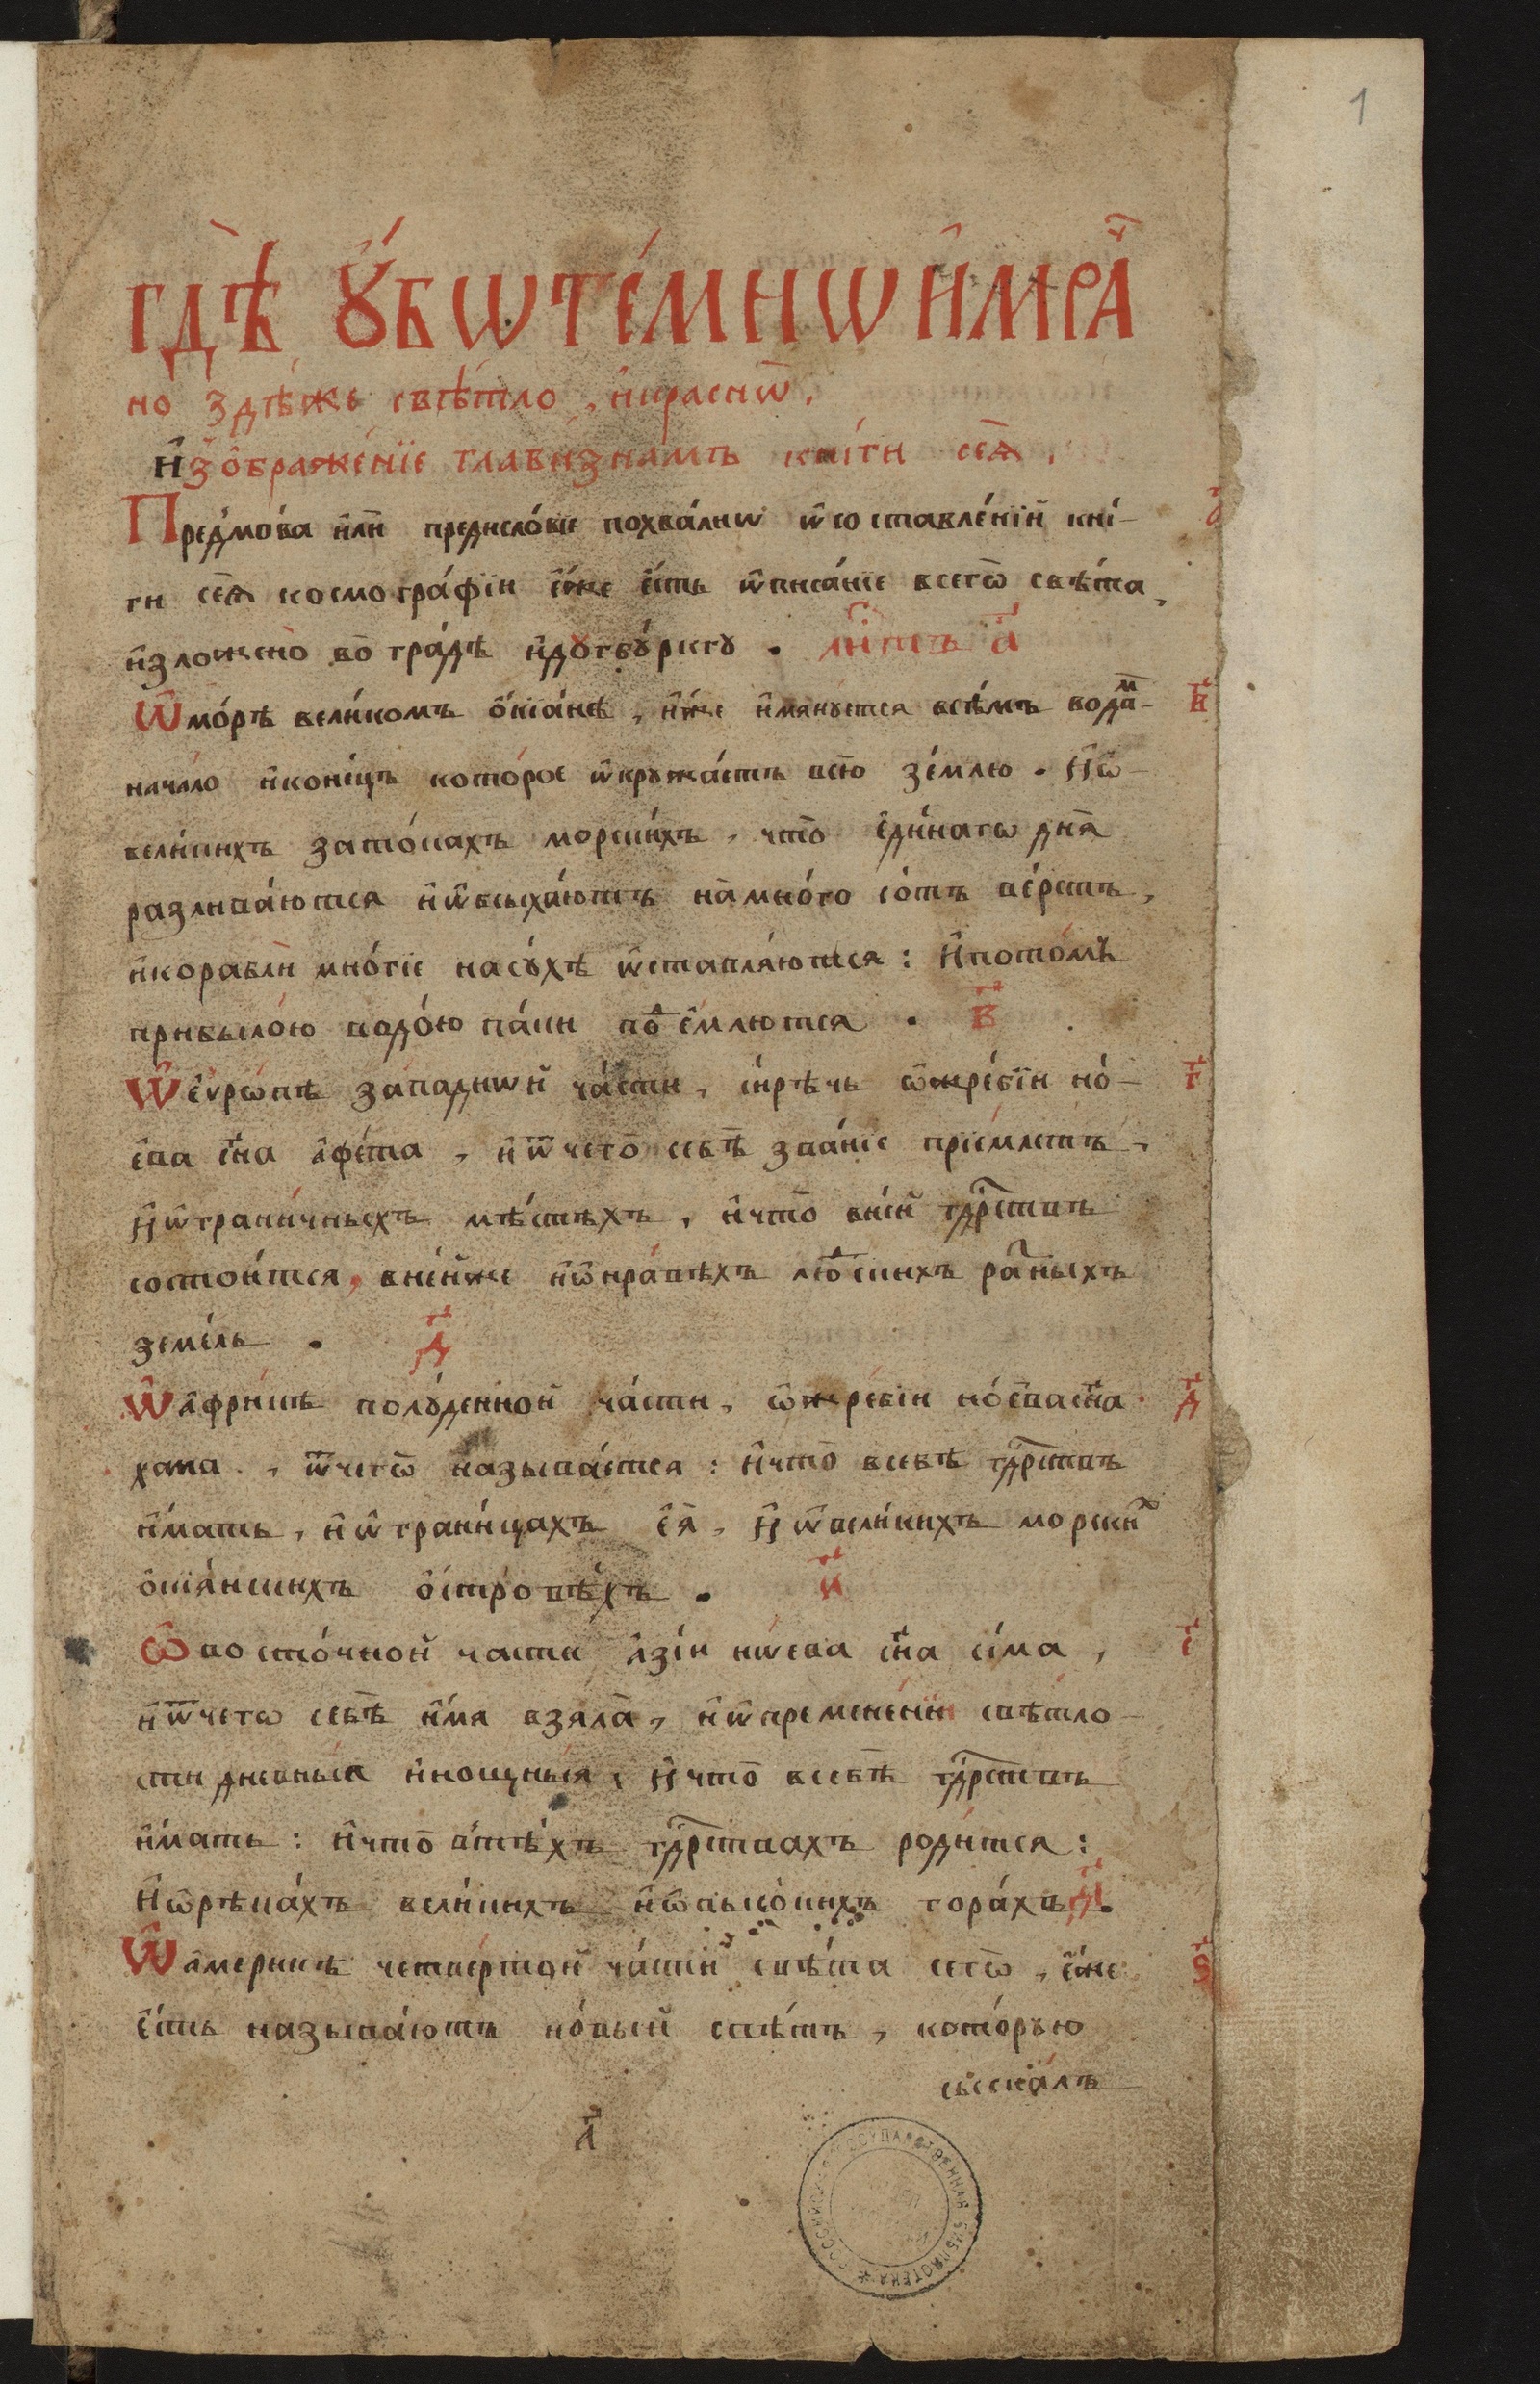 1
ГДѢ ꙊБѠ ТЕ́МНѠ И҆МРА́Ч
но̀ здѣ́же свѣ́тло, и҆красно̀.
И҆зѡ҆браже́нїе глави́знамъ кни́ги сеѧ̀.
Предмо́ва и҆лѝ предисло́вїе похва́лнѡ ѡ҆составле́нїй кни́-
ги сеѧ̀ космогра́фїи є҆́же є҆́сть ѡ҆писа́нїе всегѡ̀ свѣ́та,
и҆зложено̀ во̀ гра́дѣ и҆дꙋгбꙋ́ргꙋ. ли́стъ а҃
Ѡ҆мо́рѣ вели́комъ ѻ҆кїа́нѣ, и҆́же и҆мянꙋется всѣ́мъ вода́м-
нача́ло и҆коне́цъ кото́рое ѡ҆крꙋжа́етъ всю̀ зе́млю. И҆ѡ҆-
вели́кихъ зато́кахъ морски́хъ, что̀ є҆ди́нагѡ днѧ̀
разлива́ются и҆ѡ҆всыха́ютъ на̀мно́го со́тъ ве́рстъ,
и҆кораблѝ мно́гїе насꙋ́хѣ ѡ҆ставля́ются: И҆пото́мъ
прибыло́ю водо́ю па́ки под̾е́млются. в҃
Ѡ҆є҆ѵрѡ́пѣ за́падной ча́сти, си́рѣчь ѡ҆жре́бїи но́-
ева сн҃а а҆фе́та, и҆ѿчего̀ себѣ̀ зва́нїе прїе́млетъ,
И҆ѡ҆грани́чныхъ мѣ́стѣхъ, и҆что̀ вне́й гдр҇ствъ
состои́тся, вне́йже и҆ѡ҆нра́вѣхъ людскихъ ра́зныхъ
земе́ль. д҃
Ѡ҆а҆фри́кѣ полꙋ́денной ча́сти, ѡ҆жребїи но́евасн҃а
хама, ѿчегѡ̀ называ́ется: И҆что̀ всебѣ̀ гдр҇ствъ
и҆́мать, и҆ѡ҆грани́цахъ є҆ѧ̀, И҆ѡ҆вели́кихъ морскихъ
ѻ҆кїа́нскихъ ѻ҆стровѣ́хъ. и҃
Ѡ҆восто́чной части а҆зі́и нѡ́ева сн҃а си́ма,
и҆ѿчегѡ себѣ̀ и҆́мя взяла̀, и҆ѡ҆пременéнїи свѣ́тло-
сти дневныѧ и҆нощныѧ, И҆что̀ всебѣ̀ гдр҇ствъ
и҆́мать: И҆что̀ втѣ́хъ гдр҇ствахъ роди́тся:
И҆ѡ҆рѣка́хъ вели́кихъ и҆ѡ҆высо́кихъ гора́хъ.
Ѡ҆а҆мерикѣ четве́ртой ча́стїй свѣ́та сегѡ̀, є҆́же
є҆́сть называ́ютъ но́вый свѣ́тъ, кото́рꙋю
сыска́лъ
а҃
РОССИЙСКАЯ ГОСУДАРСТВЕННАЯ БИБЛИОТЕКА